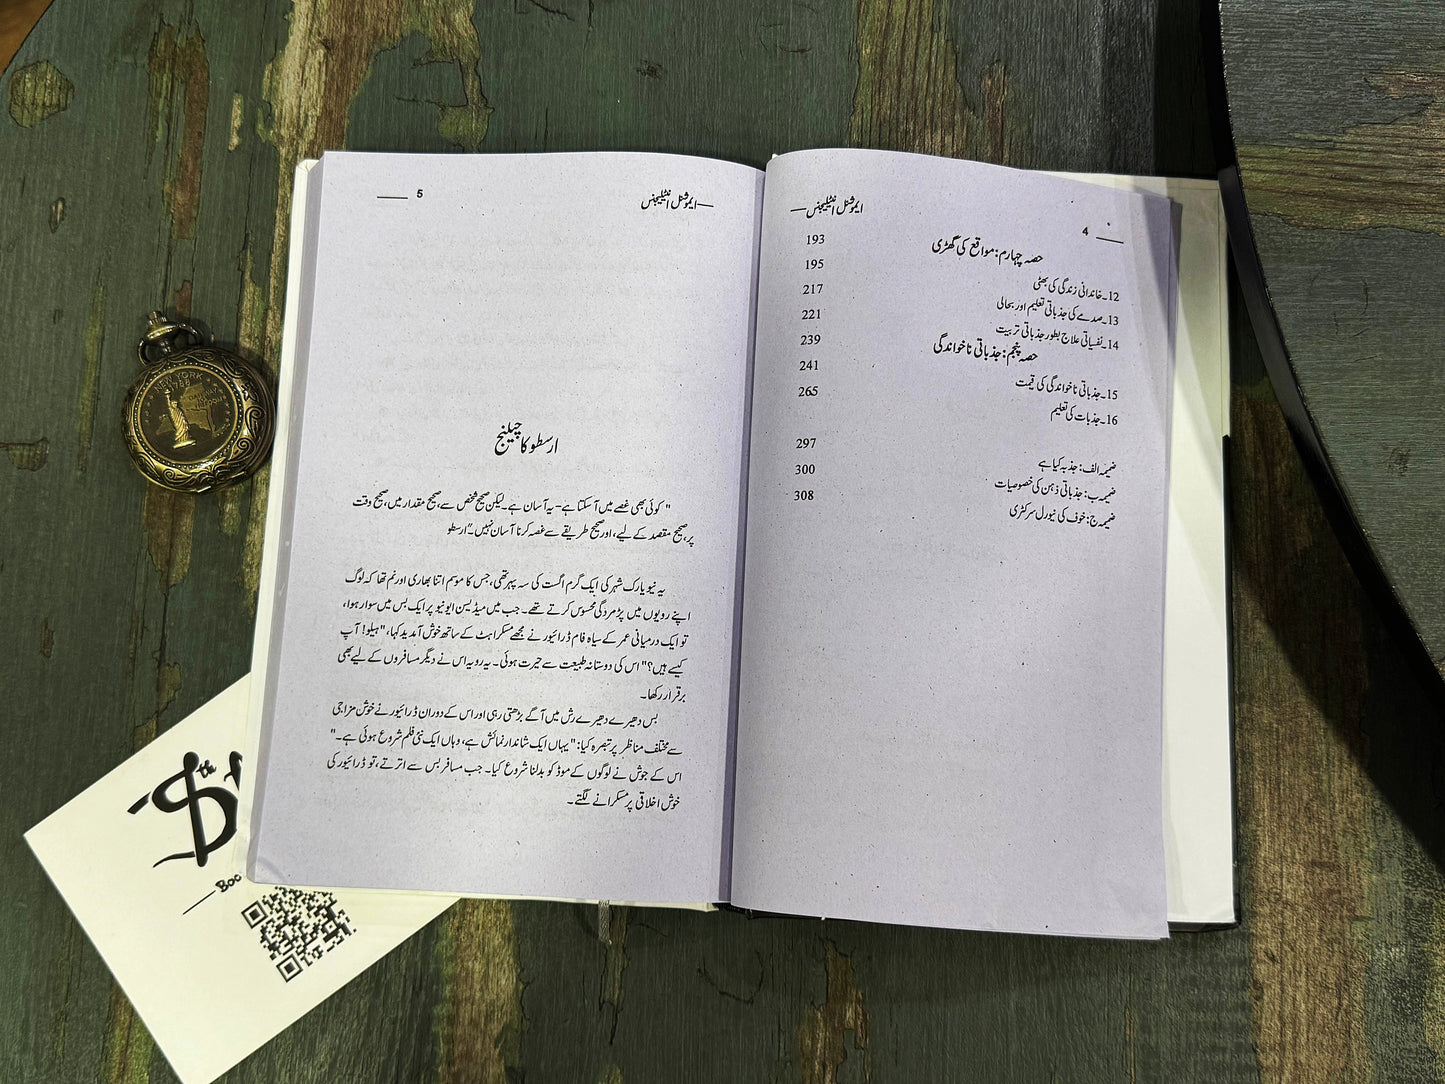 4
ایموشنل انٹیلیجنس
حصہ چہارم: مواقع کی گھڑی 193
12۔خاندانی زندگی کی بھٹی 195
13۔صدمے کی جذباتی تعلیم اور بحالی 217
14۔نفسیاتی علاج بطور جذباتی تربیت 221
حصہ پنجم: جذباتی ناخواندگی 239
15۔جذباتی ناخواندگی کی قیمت 241
16۔جذبات کی تعلیم 265
ضمیمہ الف: جذبہ کیا ہے 297
ضمیمہ ب: جذباتی ذہن کی خصوصیات 300
ضمیمہ ج: خوف کی نیورل سرکٹری 308
ایموشنل انٹیلیجنس
5
ارسطو کا چیلنج
" کوئی بھی غصے میں آ سکتا ہے- یہ آسان ہے۔ لیکن صحیح شخص سے، صحیح مقدار میں، صحیح وقت
پر، صحیح مقصد کے لیے، اور صحیح طریقے سے غصہ کرنا آسان نہیں۔" ارسطو
یہ نیویارک شہر کی ایک گرم اگست کی سہ پہر تھی، جس کا موسم اتنا بھاری اور نم تھا کہ لوگ
اپنے رویوں میں پژمردگی محسوس کرتے تھے۔ جب میں میڈیسن ایونیو پر ایک بس میں سوار ہوا،
تو ایک درمیانی عمر کے سیاہ فام ڈرائیور نے مجھے مسکراہٹ کے ساتھ خوش آمدید کہا، "ہیلو! آپ
کیسے ہیں؟" اس کی دوستانہ طبیعت سے حیرت ہوئی۔ یہ رویہ اس نے دیگر مسافروں کے لیے بھی
برقرار رکھا۔
بس دھیرے دھیرے رش میں آگے بڑھتی رہی اور اس کے دوران ڈرائیور نے خوش مزاجی
سے مختلف مناظر پر تبصرہ کیا: "یہاں ایک شاندار نمائش ہے، وہاں ایک نئی فلم شروع ہوئی ہے۔"
اس کے جوش نے لوگوں کے موڈ کو بدلنا شروع کیا۔ جب مسافر بس سے اترتے، تو ڈرائیور کی
خوش اخلاقی پر مسکرانے لگتے۔
NEW YORK
1788